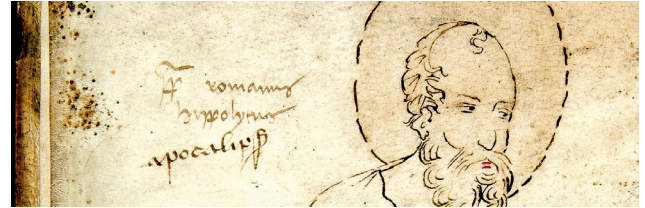 romanus
hippolytus
apocalips